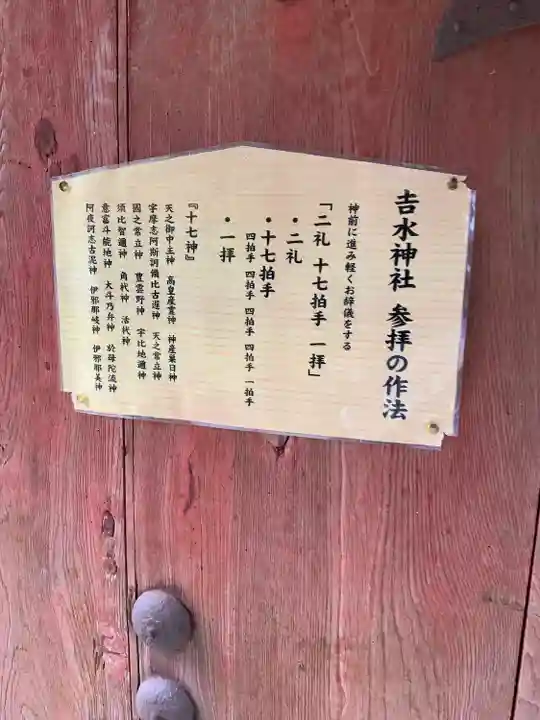 𠮷水神社 参拝の作法
神前に進み軽くお辞儀をする
「二礼 十七拍手 一拝」
・二礼
・十七拍手
四拍手 四拍手 四拍手 四拍手 一拍手
・一拝
『十七神』
天之御中主神 高皇産霊神 神産巣日神
宇摩志阿斯訶備比古遅神 天之常立神
国之常立神 豊雲野神 宇比地邇神
須比智邇神 角杙神 活杙神
意富斗能地神 大斗乃弁神 於母陀流神
阿夜訶志古泥神 伊邪那岐神 伊邪那美神